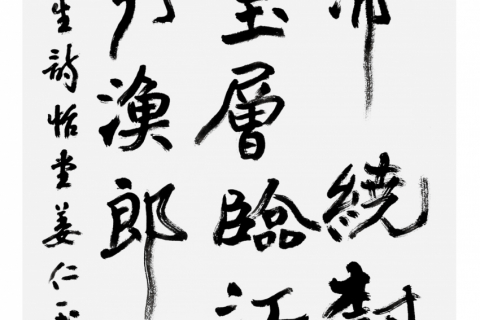 繞樹
層臨江
漁郎
生詩怡堂姜仁